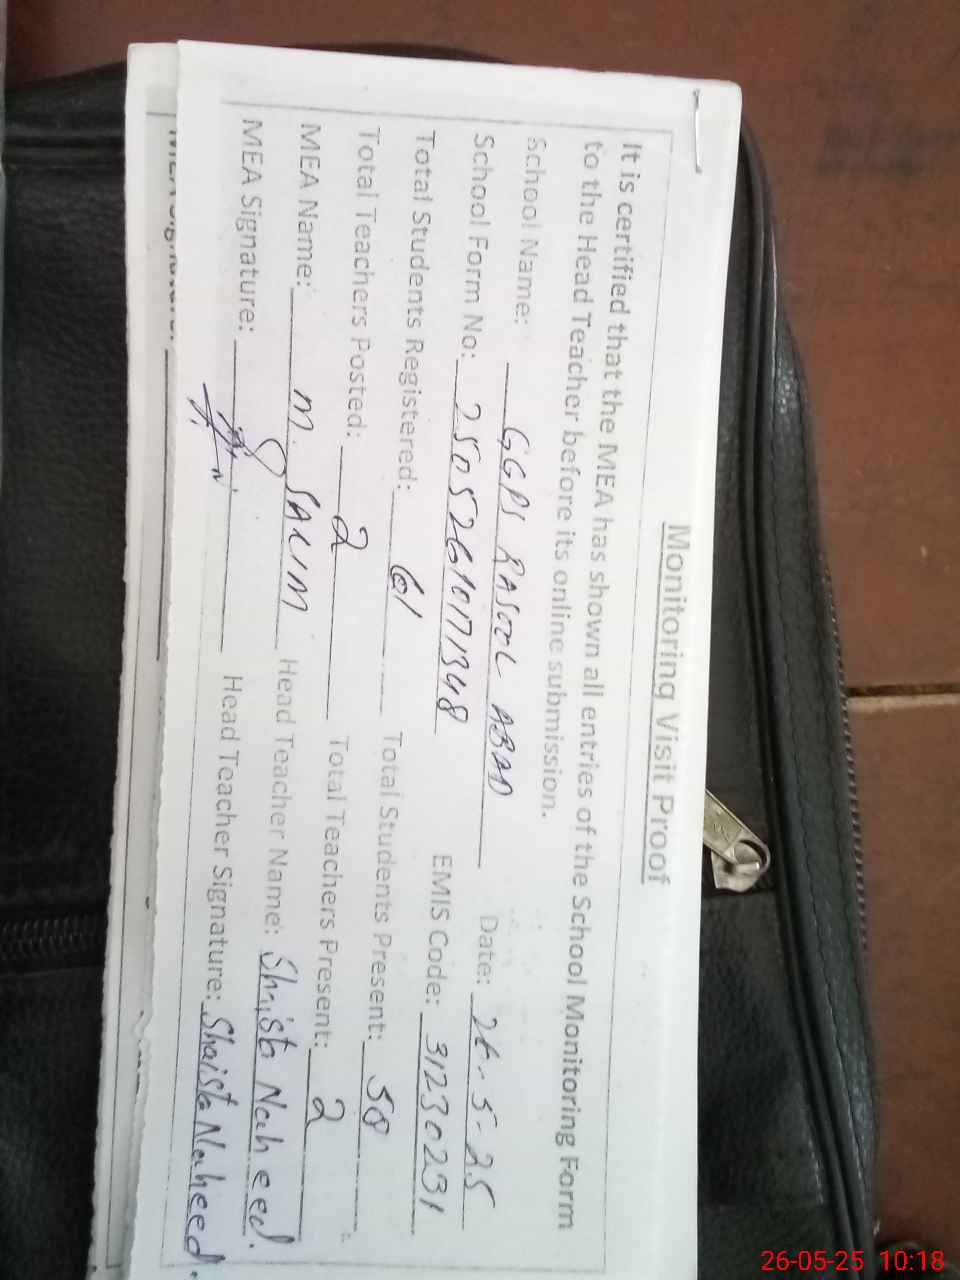 Monitoring Visit Proof
It is certified that the MEA has shown all entries of the School Monitoring Form
to the Head Teacher before its online submission.
School Name: GGPS RASOOL ABAD Date: 26-5-25
School Form No: 25052610171348 EMIS Code: 31230231
Total Students Registered: 61 Total Students Present: 50
Total Teachers Posted: 2 Total Teachers Present: 2
MEA Name: M. SALIM Head Teacher Name: Shaista Naheed.
MEA Signature: Head Teacher Signature: Shaista Naheed.
MEA Signature:
26-05-25 10:18